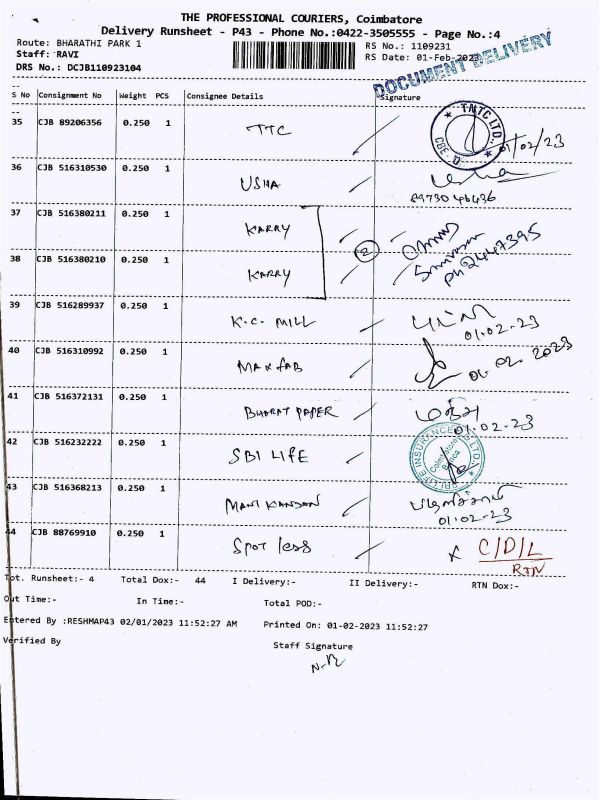 THE PROFESSIONAL COURIERS, Coimbatore
Delivery Runsheet - P43 - Phone No.:0422-3505555 - Page No.:4
Route: BHARATHI PARK 1 RS No.: 1109231
Staff: RAVI RS Date: 01-Feb-2023
DRS No.: DCJB110923104
DOCUMENT DELIVERY
S No Consignment No Weight PCS Consignee Details Signature
35 CJB 89206356 0.250 1 TTC
TNTC LTD., CBE 01/02/23
36 CJB 516310530 0.250 1 USHA Usha
8973046436
37 CJB 516380211 0.250 1 KARRY
2
38 CJB 516380210 0.250 1 KARRY
Ph 2447395
39 CJB 516289937 0.250 1 K.C. MILL
01.02-23
40 CJB 516310992 0.250 1 MAXFAB 01. 02. 2023
41 CJB 516372131 0.250 1 BHARAT PAPER
01.02-23
42 CJB 516232222 0.250 1 SBI LIFE
SBI LIFE INSURANCE CO LTD. Coimbatore Banca
43 CJB 516368213 0.250 1 MANIKANDAN
01.02-23
44 CJB 88769910 0.250 1 SPOT less X C/D/L
RTN
Tot. Runsheet:- 4 Total Dox:- 44 I Delivery:- II Delivery:- RTN Dox:-
Out Time:- In Time:- Total POD:-
Entered By :RESHMAP43 02/01/2023 11:52:27 AM Printed On: 01-02-2023 11:52:27
Verified By Staff Signature